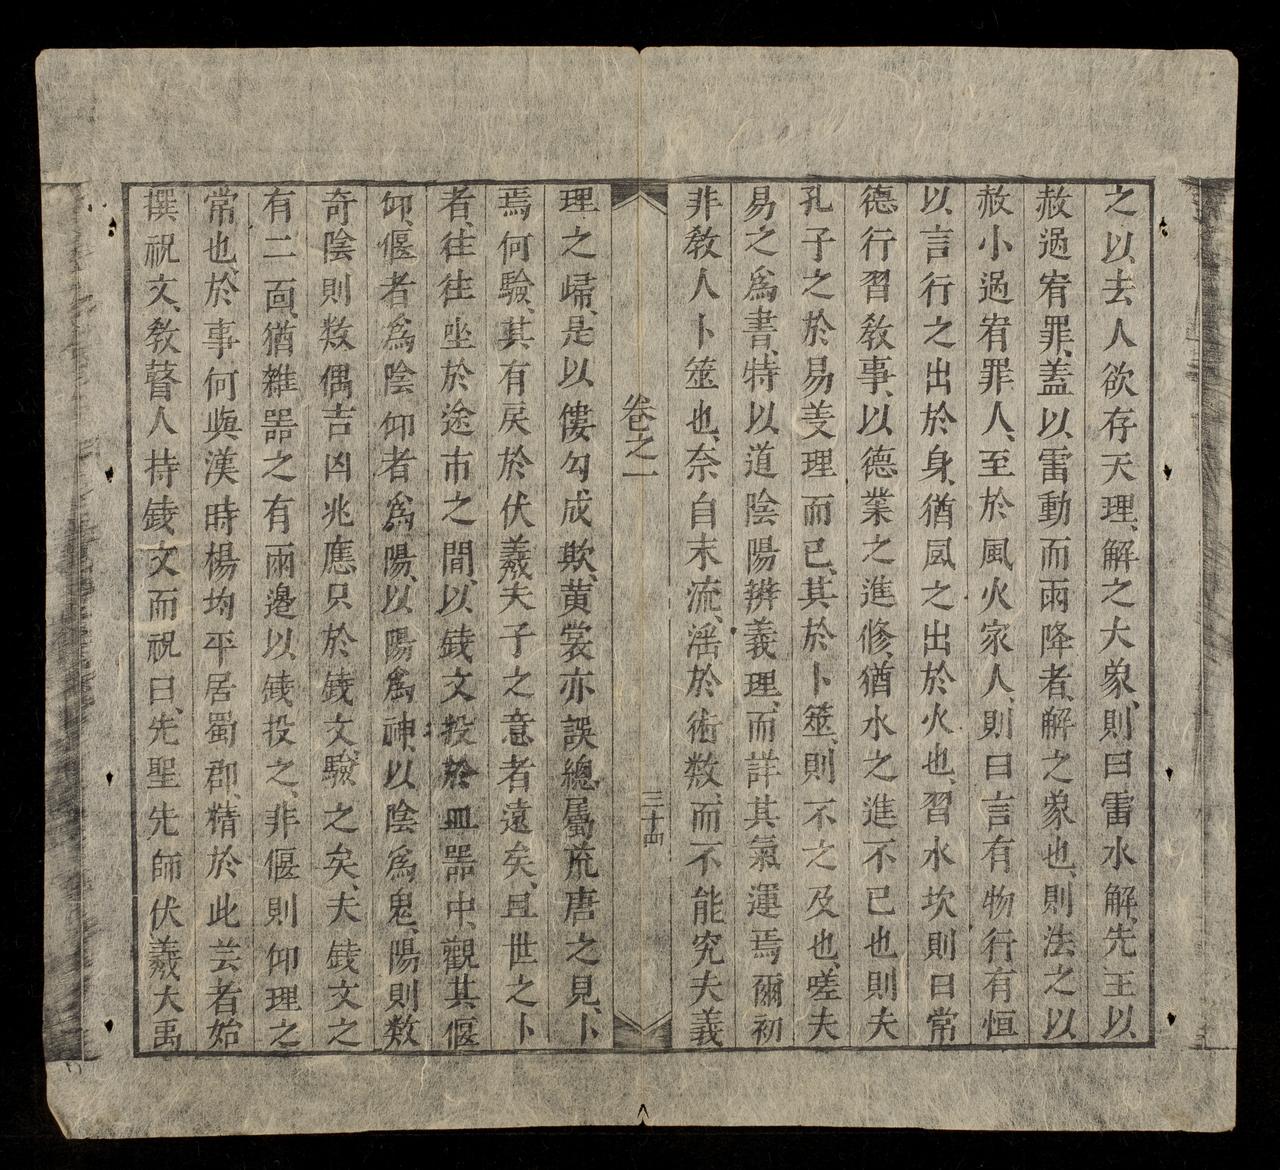 之以、去人欲存天理、解之大象、則曰雷水解、先王以
赦過宥罪、蓋以雷動而雨降者、解之象也、則法之以
赦小過宥罪人、至於風火家人、則曰言有物行有恒
以、言行之出於身、猶風之出於火也、習水坎則曰常
德行習教事、以德業之進修、猶水之進不已也則夫
孔子之於易爻理而已、其於卜筮、則不之及也、嗟夫
易之爲書、特以道陰陽辨義理、而詳其氣運焉爾初
非教人卜筮也、奈自末流、滛於術数、而不能究夫義
卷之一
三十四
理之歸、是以僂勾成欺、黄裳亦誤總屬荒唐之見、卜
焉何驗、其有戾於伏羲夫子之意者遠矣、且世之卜
者、往往坐於途市之間、以錢文投於皿器中、觀其偃
仰、偃者爲陰仰者爲陽、以陽爲神、以陰爲鬼、陽則数
奇陰則数偶吉凶兆應、只於錢文、驗之矣、夫錢文之
有二靣、猶雜器之有兩邉以、錢投之、非偃則仰理之
常也、於事何與漢時楊均平居蜀郡、精於此芸者始
撰祝文、教瞽人持錢文而祝曰、先聖先師伏羲大禹